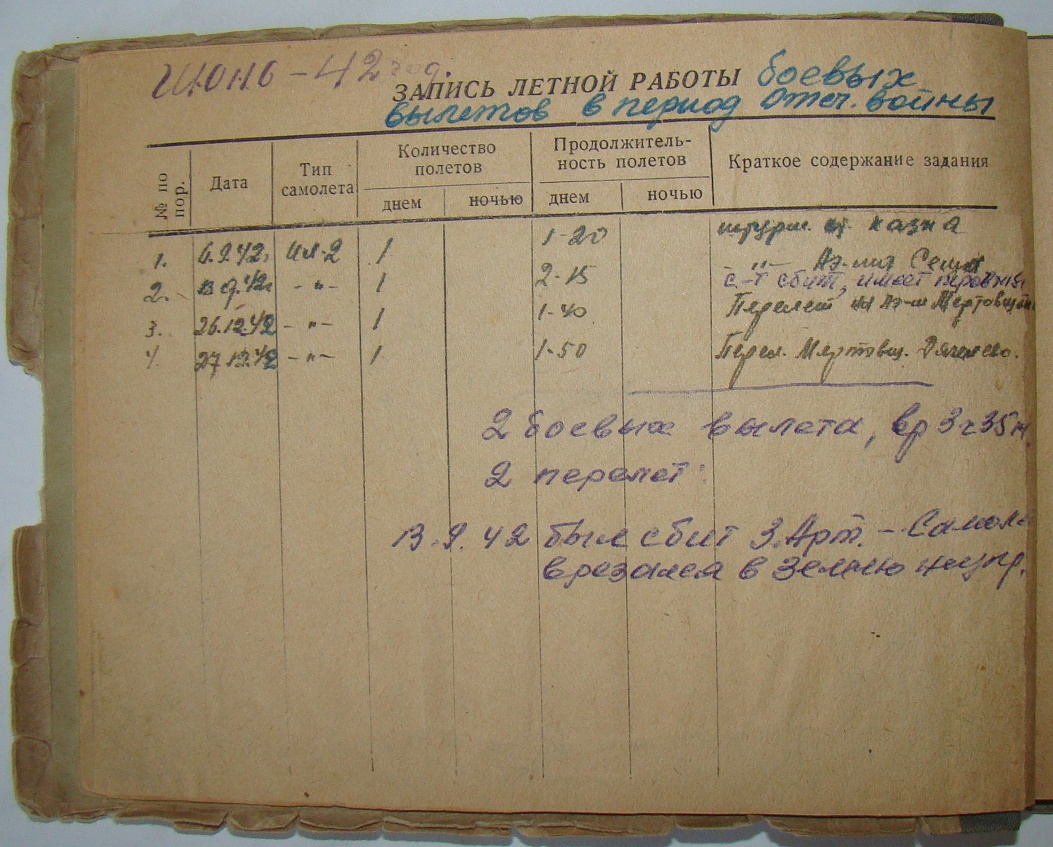 Июнь - 42 год.
ЗАПИСЬ ЛЕТНОЙ РАБОТЫ боевых
вылетов в период Отеч. войны
№ по пор.
Дата
Тип самолета
Количество полетов
Продолжитель-
ность полетов
Краткое содержание задания
днем ночью днем ночью
1. 6.9.42 Ил-2 1 1-20 штурм.
2. 13.9.42 - " - 1 2-15 - " - Аэ-ма Сеща
с-т сбит, имеет
3. 26.12.42 - " - 1 1-40 Перелет на Аэ-м
4. 27.12.42 - " - 1 1-50 Перел. Дягилево.
2 боевых вылета, вр 3ч 35м.
2 перелет.
13.9.42 был сбит З.Арт. - Самол.
врезался в Землю